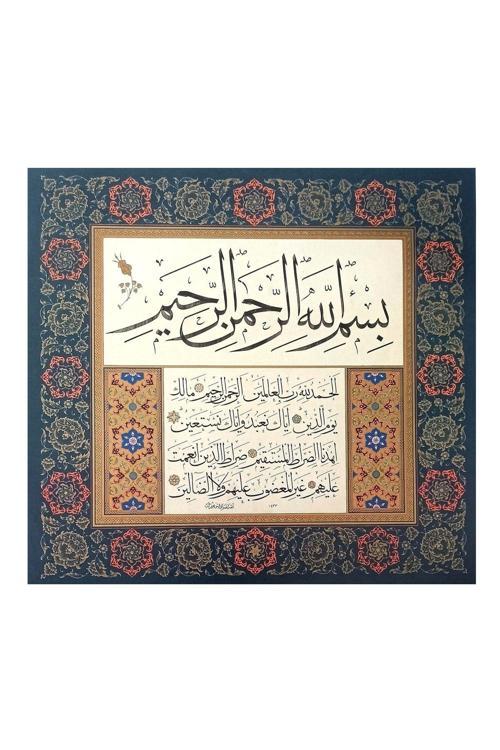 بِسْمِ اللهِ الرَّحْمٰنِ الرَّحِيْمِ
الحمد لله رب العالمين الرحمن الرحيم مالك
يوم الدين اياك نعبد واياك نستعين
اهدنا الصراط المستقيم صراط الذين انعمت
عليهم غير المغضوب عليهم ولا الضالين
١٤٣٣